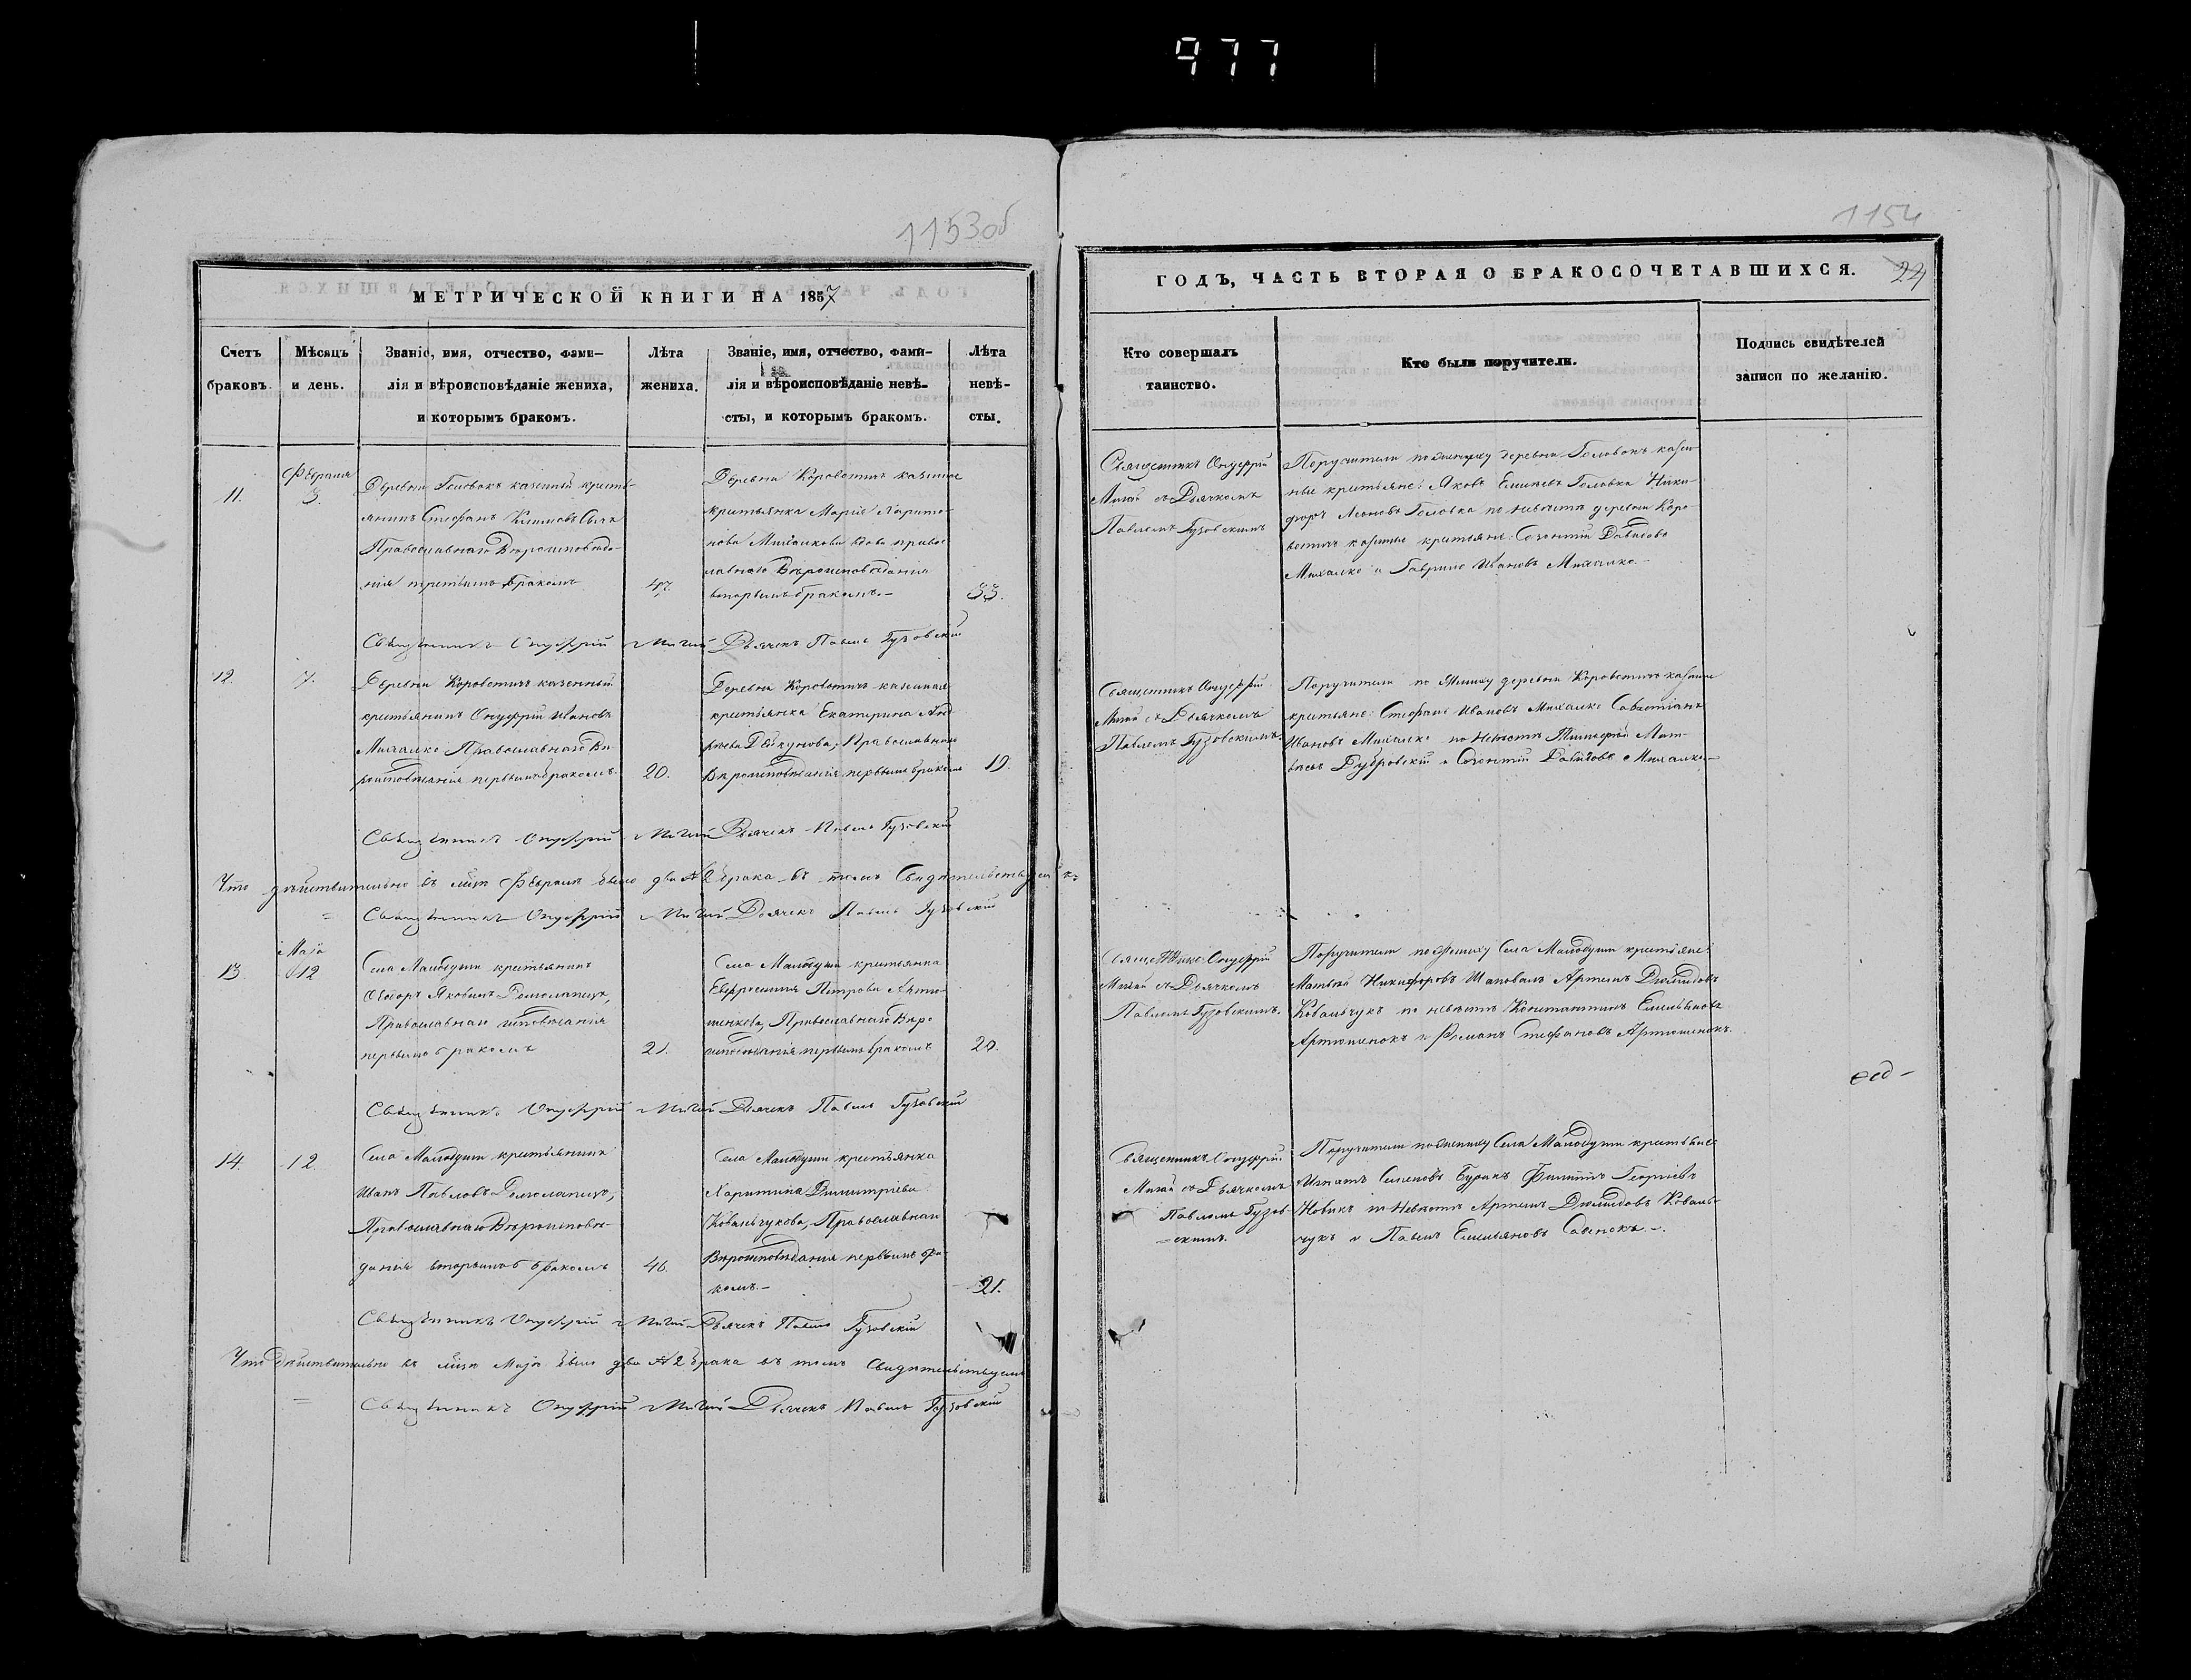 977
1153об
МЕТРИЧЕСКОЙ КНИГИ НА 1857
Счетъ браковъ.
Мѣсяцъ и день.
Званіе, имя, отчество, фами-
лія и вѣроисповѣданіе жениха,
и которымъ бракомъ.
Лѣта жениха.
Званіе, имя, отчество, фами-
лія и вѣроисповѣданіе невѣ-
сты, и которымъ бракомъ.
Лѣта невѣ-
сты.
11.
Февраля
3.
Деревни Головокъ казенный кресть-
янинъ Стефанъ Климовъ
Православнаго Вѣроисповѣда-
нія третьимъ бракомъ
47.
Деревни Короватичъ казенная
крестьянка Марія Харито-
нова Михалкова вдова право-
славнаго Вѣроисповѣданія
вторымъ бракомъ.-
33.
Священникъ Онуфрій Мигай Дьячекъ Павелъ Гузовскій
12.
7.
Деревни Короватичъ казенный
крестьянинъ Онуфрій Ивановъ
Михалко Православнаго Вѣ-
роисповѣданія первымъ бракомъ.
20.
Деревни Короватичъ казенная
крестьянка Екатерина Анд-
реева Православнаго
Вѣроисповѣданія первымъ бракомъ
19.
Священникъ Онуфрій Мигай Дьячекъ Павелъ Гузовскій
Что дѣйствительно въ мцѣ Февралѣ было два № 2 брака въ томъ Свидѣтельствуемъ
Священникъ Онуфрій Мигай Дьячекъ Павелъ Гузовскій
13.
Маія
12
Села Малодуши крестьянинъ
Ѳеодоръ Яковлевъ
Православнаго исповѣданія
первымъ бракомъ
21.
Села Малодуши крестьянка
Евфросинія Петрова Артю-
шенкова, Православнаго Вѣро-
исповѣданія первымъ бракомъ
20.
Священникъ Онуфрій Мигай Дьячекъ Павелъ Гузовскій
14.
12.
Села Малодуши крестьянинъ
Иванъ Павловъ
Православнаго Вѣроисповѣ-
данія вторымъ бракомъ
46.
Села Малодуши крестьянка
Харитина Димитріева
Ковальчукова, Православнаго
Вѣроисповѣданія первымъ бра-
комъ.-
21.
Священникъ Онуфрій Мигай Дьячекъ Павелъ Гузовскій
Что дѣйствительно въ мцѣ Маѣ было два № 2 брака въ томъ Свидѣтельствуемъ
Священникъ Онуфрій Мигай Дьячекъ Павелъ Гузовскій
1154
ГОДЪ, ЧАСТЬ ВТОРАЯ О БРАКОСОЧЕТАВШИХСЯ.
Кто совершалъ
таинство.
Кто были поручители.
Подпись свидѣтелей
записи по желанію.
Священникъ Онуфрій
Мигай съ Дьячкомъ
Павломъ Гузовскимъ
Поручители по жениху деревни Головокъ казен-
ные крестьяне: Яковъ Головка Ники-
форъ Леоновъ Головка по невѣстѣ деревни Коро-
ватичъ казенные крестьяне: Созонтій Давидовъ
Михалко и Гавріилъ Ивановъ Михалко.-
Священникъ Онуфрій
Мигай съ Дьячкомъ
Павломъ Гузовскимъ.
Поручители по жениху деревни Короватичъ казенные
крестьяне: Стефанъ Ивановъ Михалко Савастіанъ
Ивановъ Михалко по Невѣстѣ Тимофей Мат-
вѣевъ Дубровскій и Созонтій Давидовъ Михалко-
Священникъ Онуфрій
Мигай съ Дьячкомъ
Павломъ Гузовскимъ.
Поручители по жениху Села Малодуши крестьяне:
Матвей Никифоровъ Шаповалъ Артемъ Діомидовъ
Ковальчукъ по невѣстѣ Константинъ Емельяновъ
Артюшенокъ и Романъ Стефановъ Артюшенокъ.
Священникъ Онуфрій
Мигай съ Дьячкомъ
Павломъ Гузов-
скимъ.
Поручители по жениху Села Малодуши крестьяне
Игнатъ Семеновъ Буракъ Филиппъ Георгіевъ
Новикъ по Невѣстѣ Артемъ Діомидовъ Коваль-
чукъ и Павелъ Емельяновъ Савенокъ.-